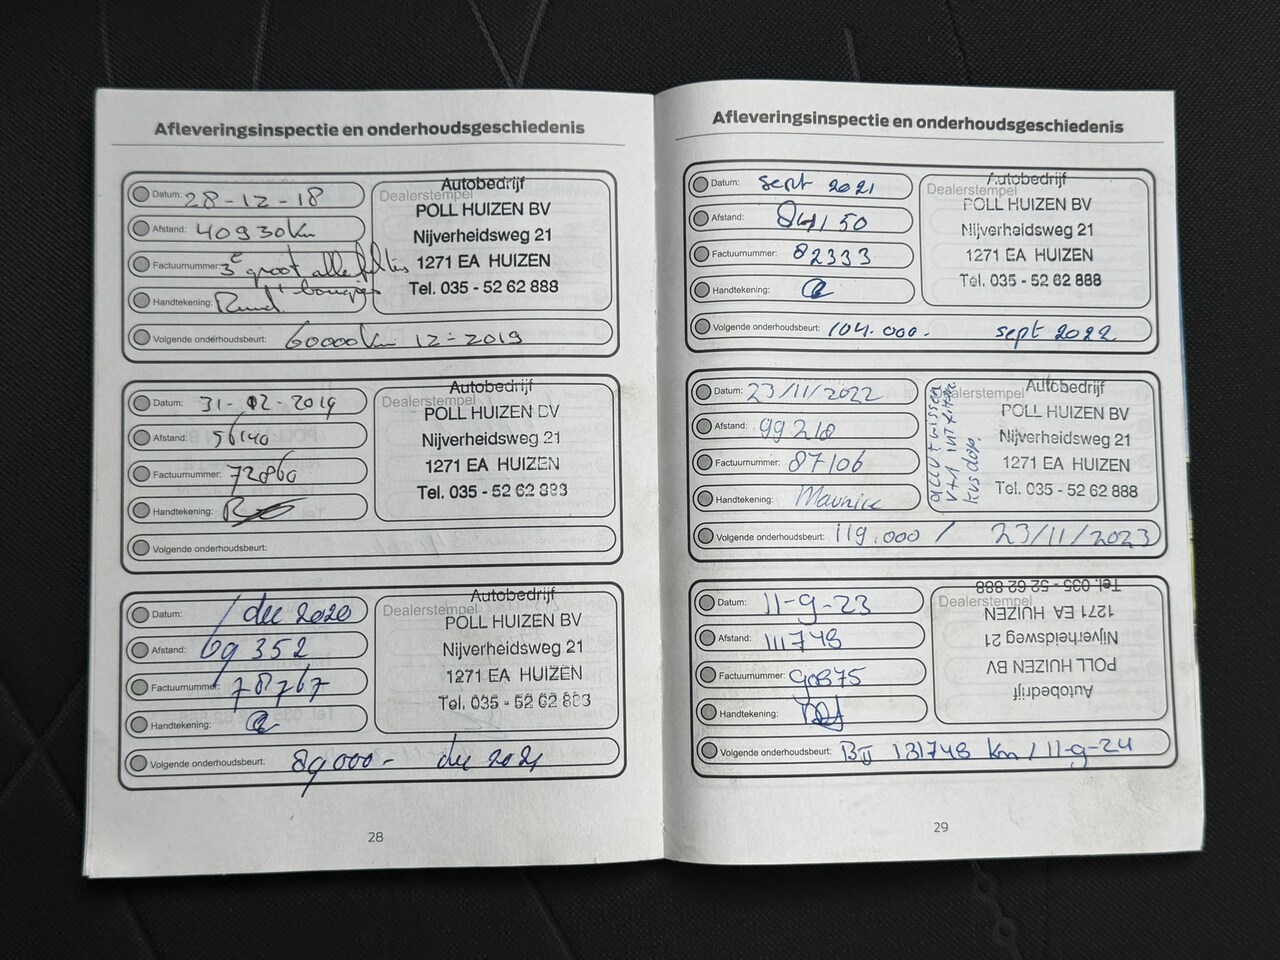 Afleveringsinspectie en onderhoudsgeschiedenis
Datum: 28-12-18
Afstand: 40930km
Factuurnummer: 3e groot alle filters
+ bougies
Handtekening: Ruud
Volgende onderhoudsbeurt: 60000km 12-2019
Dealerstempel
Autobedrijf
POLL HUIZEN BV
Nijverheidsweg 21
1271 EA HUIZEN
Tel. 035 - 52 62 888
Datum: 31-12-2019
Afstand: 56140
Factuurnummer: 72860
Handtekening:
Volgende onderhoudsbeurt:
Dealerstempel
Autobedrijf
POLL HUIZEN BV
Nijverheidsweg 21
1271 EA HUIZEN
Tel. 035 - 52 62 888
Datum: / dec 2020
Afstand: 69352
Factuurnummer: 78767
Handtekening:
Volgende onderhoudsbeurt: 89000- dec 2021
Dealerstempel
Autobedrijf
POLL HUIZEN BV
Nijverheidsweg 21
1271 EA HUIZEN
Tel. 035 - 52 62 883
28
Afleveringsinspectie en onderhoudsgeschiedenis
Datum: sept 2021
Afstand: 84150
Factuurnummer: 82333
Handtekening:
Volgende onderhoudsbeurt: 104.000.- sept 2022
Dealerstempel
Autobedrijf
POLL HUIZEN BV
Nijverheidsweg 21
1271 EA HUIZEN
Tel. 035 - 52 62 888
Datum: 23/11/2022
Afstand: 99210
Factuurnummer: 87106
Handtekening: Maurice
Volgende onderhoudsbeurt: 119.000 / 23/11/2023
Dealerstempel
Autobedrijf
POLL HUIZEN BV
Nijverheidsweg 21
1271 EA HUIZEN
Tel. 035 - 52 62 888
Datum: 11-9-23
Afstand: 111748
Factuurnummer: 90875
Handtekening:
Volgende onderhoudsbeurt: 131748 km / 11-9-24
Dealerstempel
Autobedrijf
POLL HUIZEN BV
Nijverheidsweg 21
1271 EA HUIZEN
Tel. 035 - 52 62 888
29